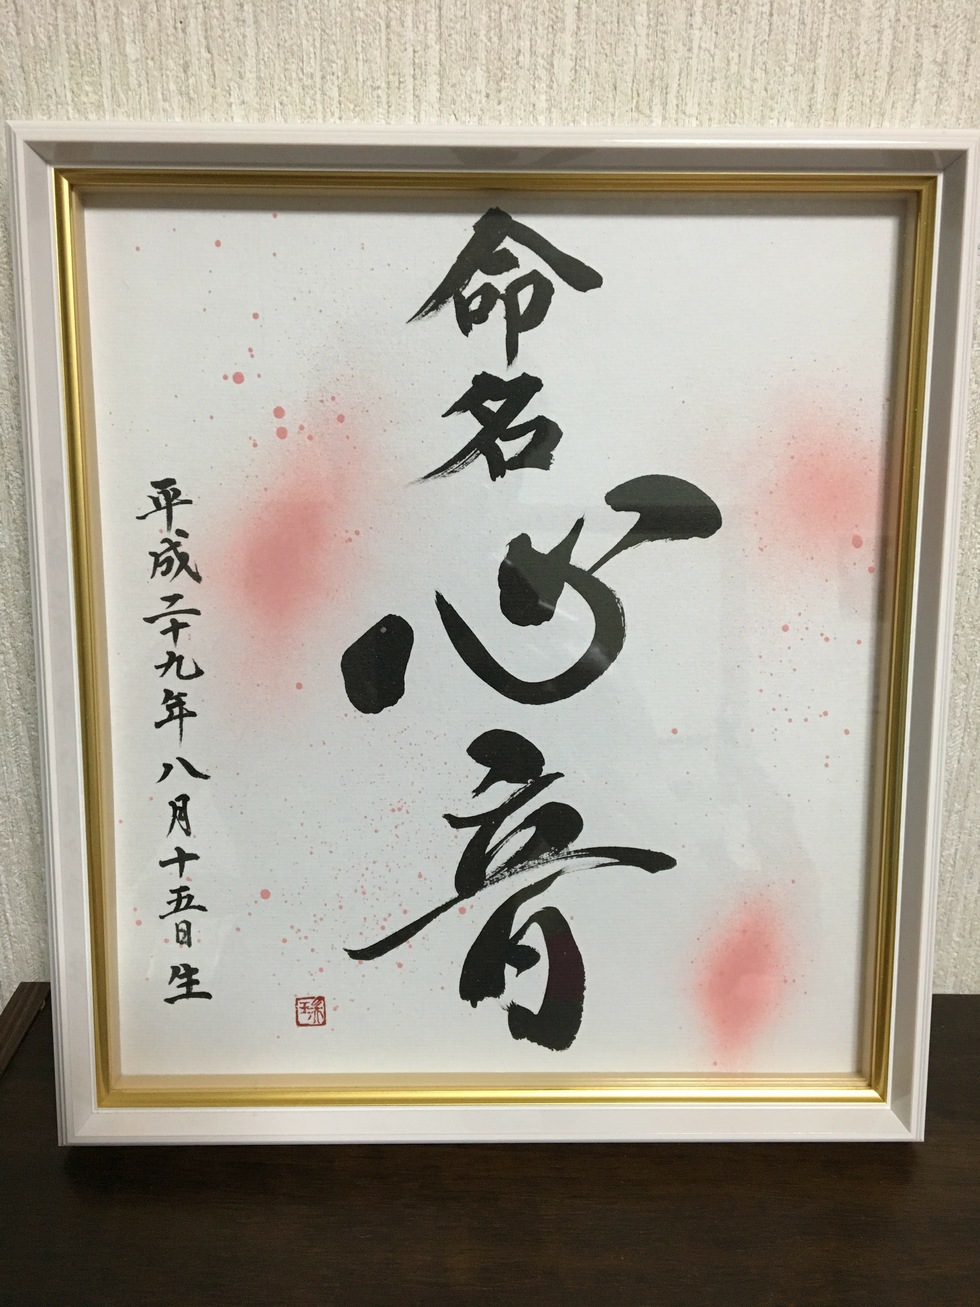 命名
心音
平成二十九年八月十五日生